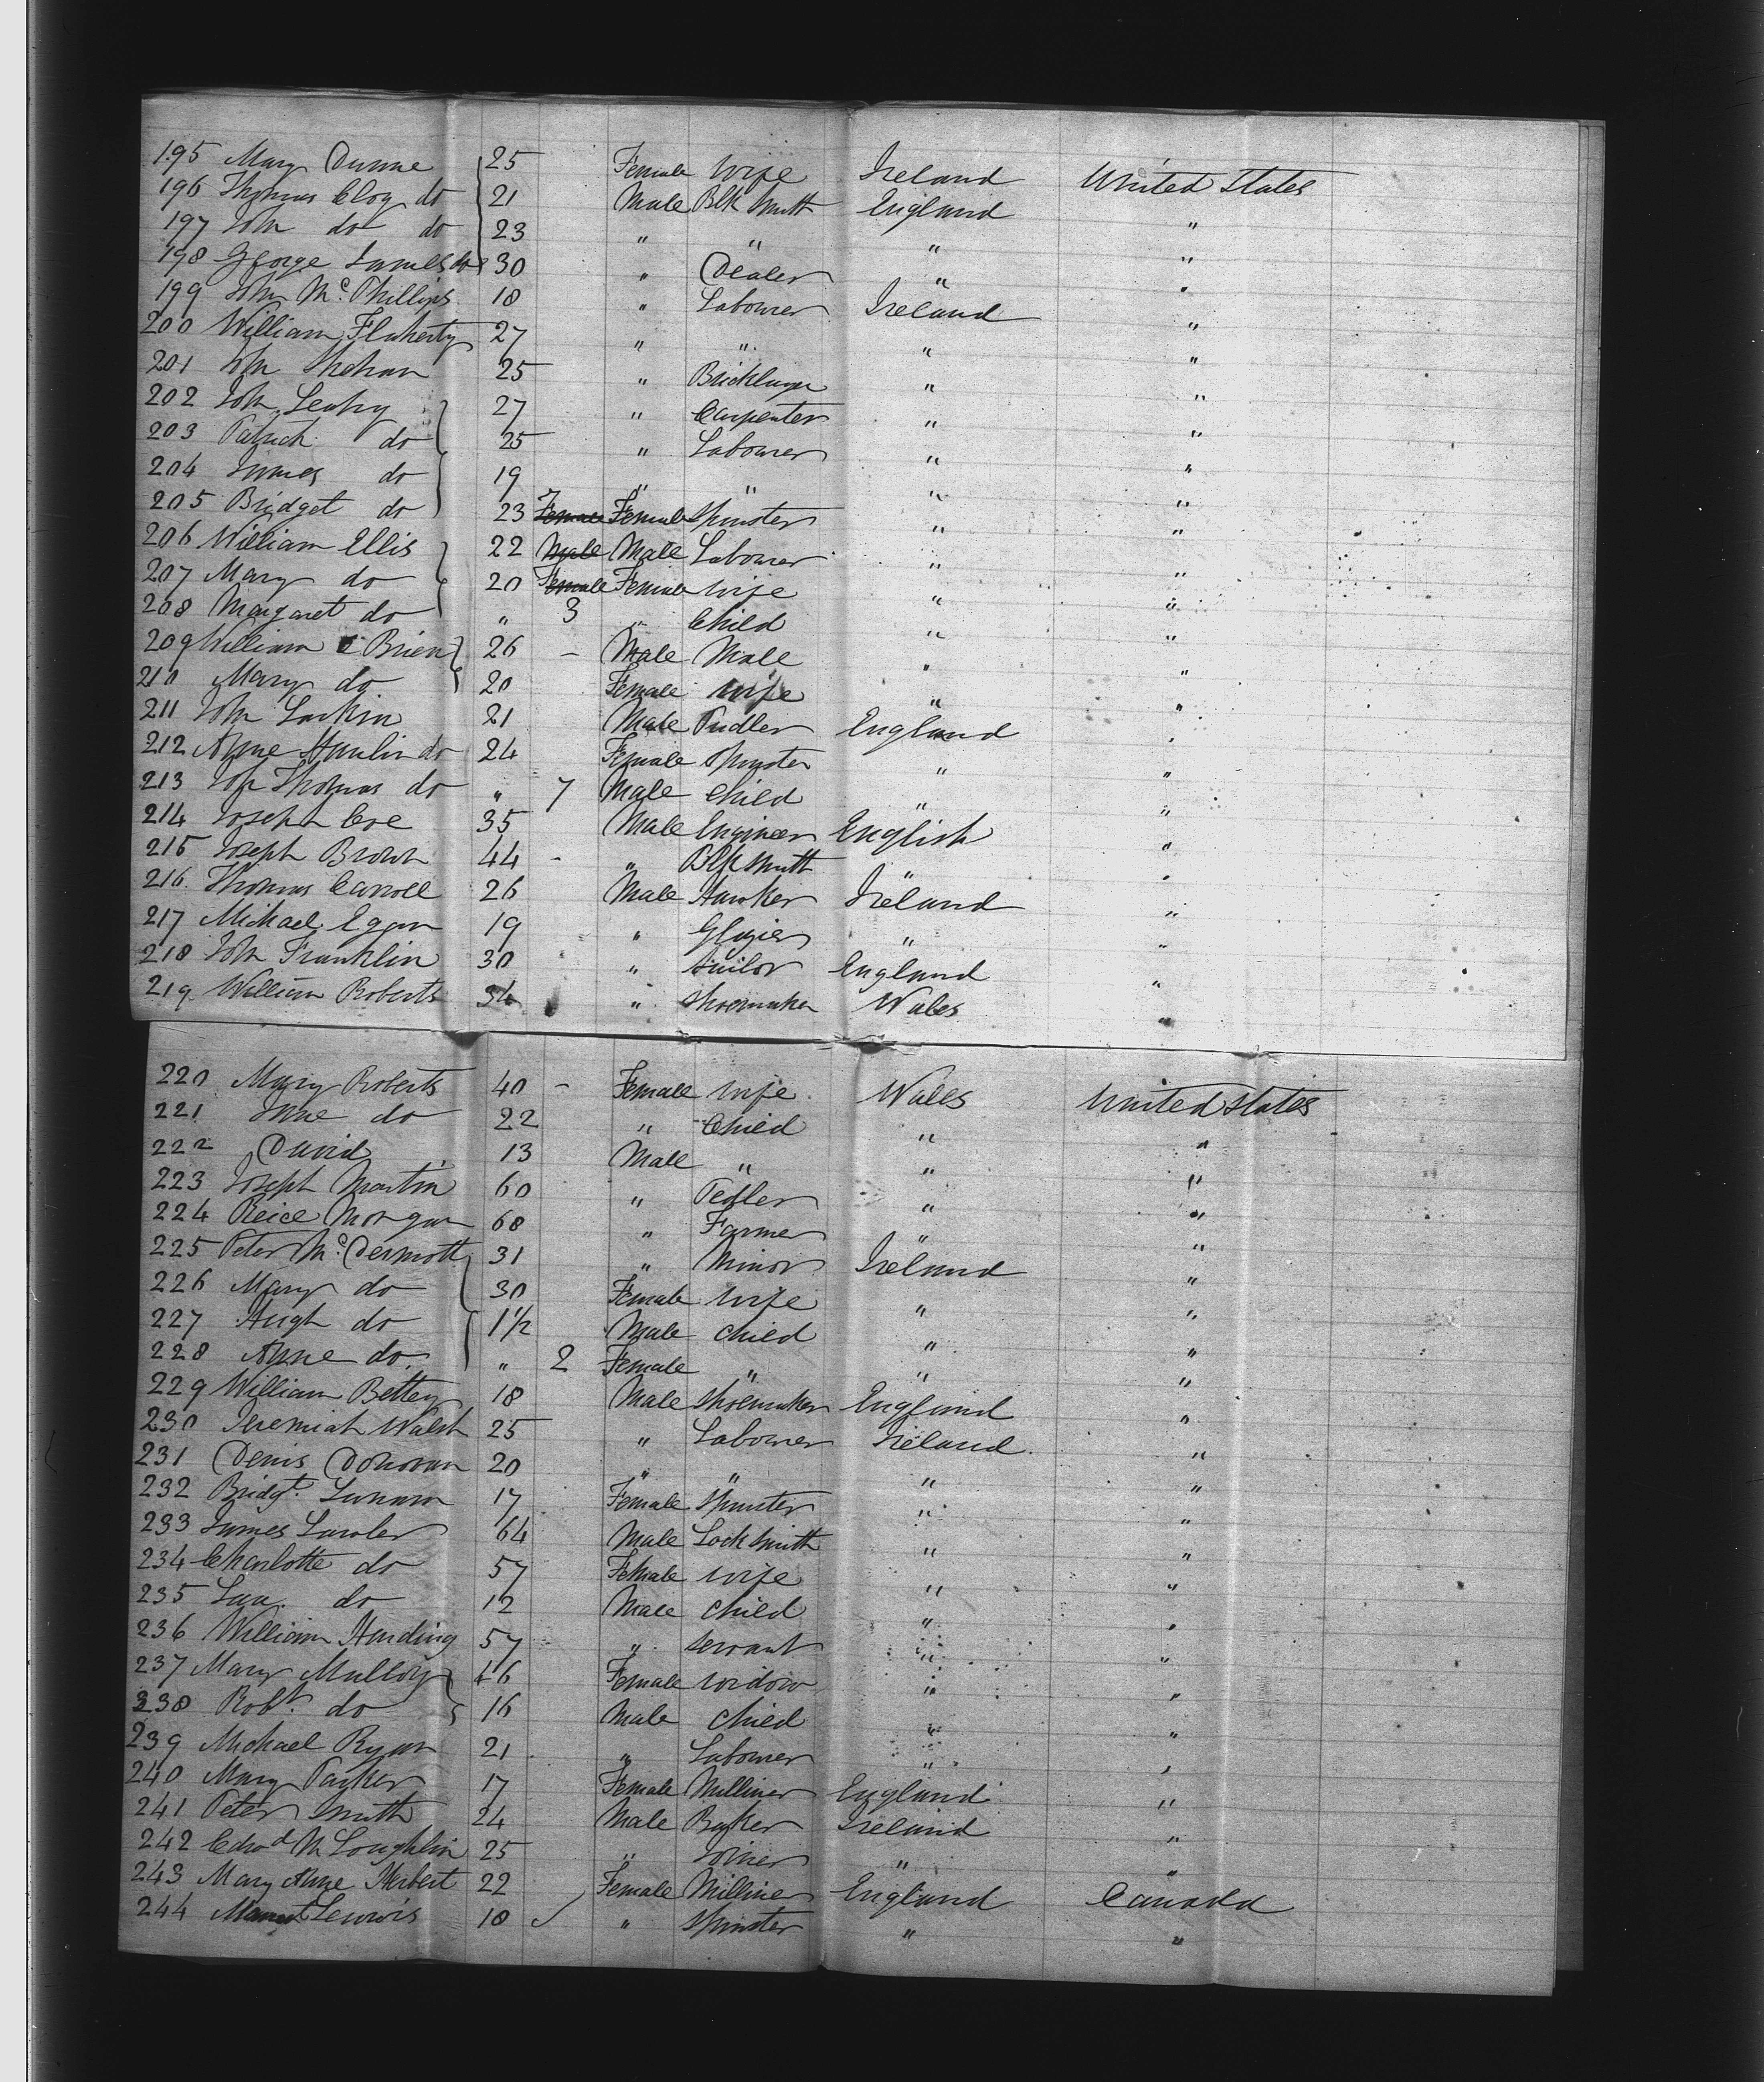 195 Mary Dunne 25 Female wife Ireland United States
196 Thomas Cloy do 21 Male Blk Smith England "
197 John do do 23 " " " "
198 George James do 30 " Dealer " "
199 John Mc Phillips 18 " Labourer Ireland "
200 William Flaherty 27 " " " "
201 John Shehan 25 " Bricklayer " "
202 John Leahy 27 " Carpenter " "
203 Patrick do 25 " Labourer " "
204 James do 19 " " " "
205 Bridget do 23 Female Female Spinster " "
206 William Ellis 22 Male Male Labourer " "
207 Mary do 20 Female Female wife " "
208 Margaret do " 3 " Child " "
209 William O Brien 26 - Male Male " "
210 Mary do 20 Female wife " "
211 John Larkin 21 Male Pudler England "
212 Anne do 24 Female Spinster " "
213 John Thomas do " 7 Male Child " "
214 Joseph Coe 35 Male Engineer English "
215 Joseph Brown 44 - " Blk Smith " "
216 Thomas Carroll 26 Male Hawker Ireland "
217 Michael Egan 19 " Glazier " "
218 John Franklin 30 " Sailor England "
219 William Roberts 34 " Shoemaker Wales "
220 Mary Roberts 40 - Female wife Wales United States
221 Jane do 22 " Child " "
222 David 13 Male " " "
223 Joseph Martin 60 " Pedler " "
224 Reice Morgan 68 " Farmer " "
225 Peter Mc Dermott 31 " Minor Ireland "
226 Mary do 30 Female wife " "
227 Hugh do 1 1/2 Male child " "
228 Anne do " 2 Female " " "
229 William Bettey 18 Male Shoemaker England "
230 Jeremiah Walsh 25 " Labourer Ireland "
231 Denis Donovan 20 " " " "
232 Bridgt. 17 Female Spinster " "
233 James Lawler 64 Male Lock Smith " "
234 Charlotte do 57 Female wife " "
235 do 12 Male child " "
236 William Harding 57 " servant " "
237 Mary Mulloy 46 Female widow " "
238 Robt. do 16 Male child " "
239 Michael Ryan 21 " Labourer " "
240 Mary Parker 17 Female Milliner England "
241 Peter Smith 24 Male Baker Ireland "
242 Edwd Mc Loughlin 25 " Joiner " "
243 Mary Anne Herbert 22 Female Milliner England Canada
244 Lewis 18 " Spinster " "